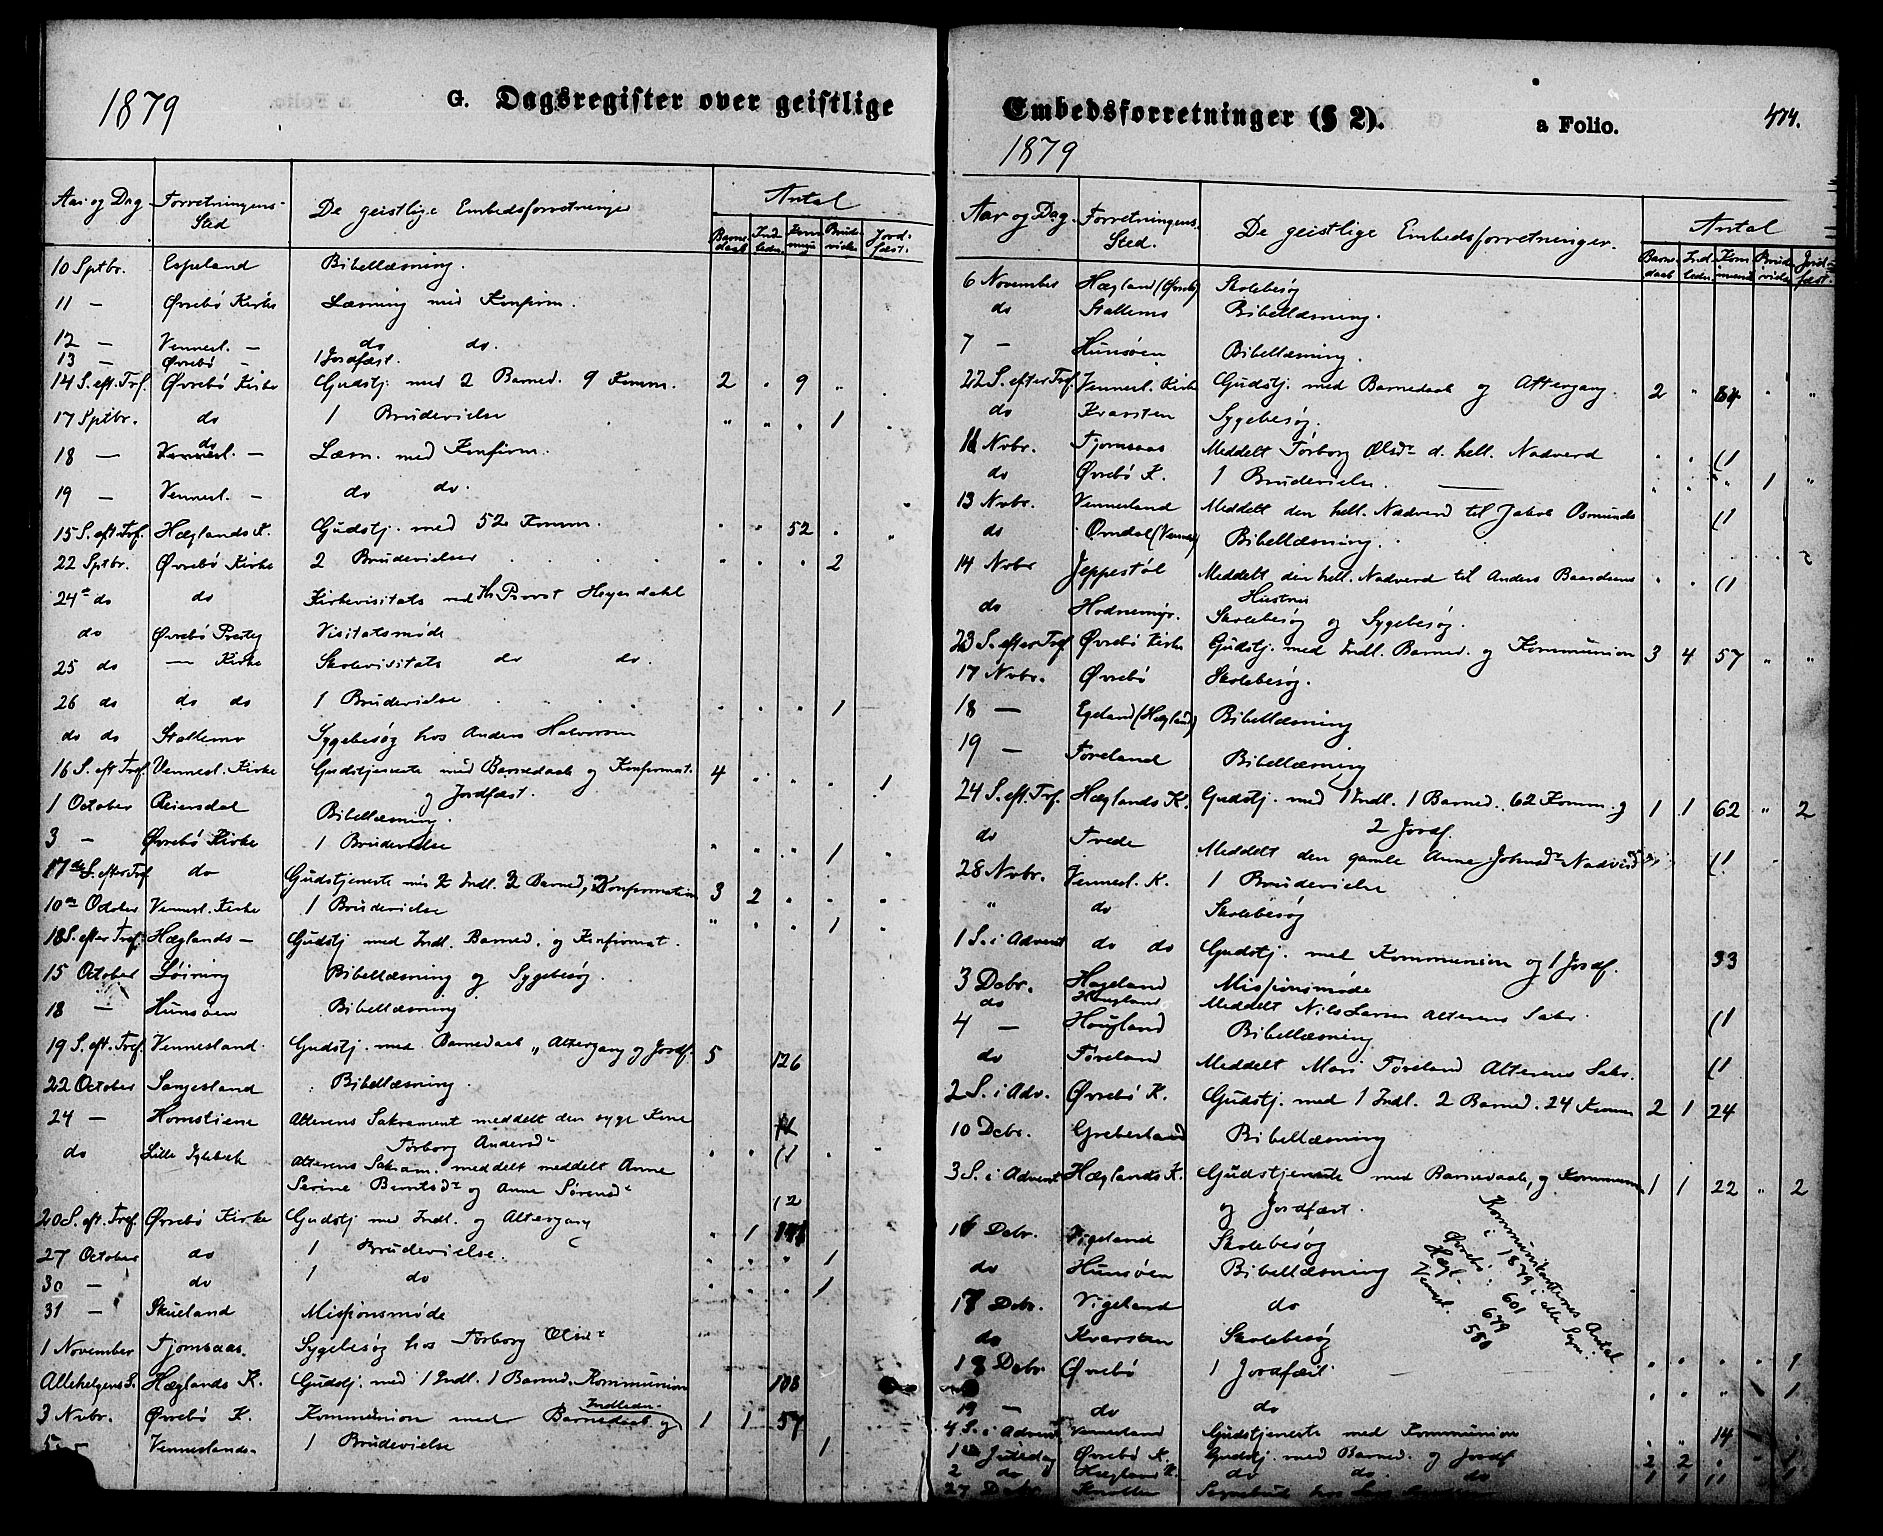 1879
G. Dagsregister over geistlige
Aar og Dag Forretningens-Sted De geistlige Embedsforretninger Antal
Barnedaab Indleden Kommun Brudevielse Jordfæst.
10 Sptbr. Espeland Bibellæsning.
11 — Øvrebø Kirke Læsning med Konfirm.
12 — Vennesl. — do do.
13 — Øvrebø — 1 Jordfæst.
14 S. eft. Trf. Øvrebø Kirke Gudstj. med 2 Barned. 9 Komm. 2 " 9 "
17 Sptbr. do 1 Brudevielse " " " 1
18 — do — Læsn. med Konfirm.
19 — Vennesl. — do do.
15 S. eft. Trf. Hæglands K. Gudstj. med 52 Komm. " " 52 " "
22 Sptbr. Øvrebø Kirke 2 Brudevielser " " " 2
24de do do Kirkevisitats ved Hr Provst Heyerdahl
do Øvrebø Prstg Visitatsmøde
25 do — Kirke Skolevisitats do do.
26 do do do 1 Brudevielse " " " 1
do do Stallemo Sygebesøg hos Anders Halvorsen
16 S. eft Tref. Vennesl. Kirke Gudstjeneste med Barnedaab og Konfirmat. 4 " " " 1
og Jordfæst.
1 October Reiersdal Bibellæsning.
3 — Øvrebø Kirke 1 Brudevielse " " " 1 "
17de S. efter Tref do Gudstjeneste m. 2 Indl. 3 Barned, Konfirmation 3 2 " " "
10de October Vennesl. Kirke 1 Brudevielse " " " 1
18 S. efter Tref. Hæglands — Gudstj med Indl. Barned. og Konfirmat.
15 October Løining Bibellæsning og Sygebesøg.
18 — Hunsøen Bibellæsning
19 S. eft. Tref. Vennesland. Gudstj. med Barnedaab „ Altergang og Jordf. 5 126
22 October Sangesland Bibellæsning.
24 — Homstiene Alterens Sakrament meddelt den syge Kone
Torborg Andersdr
do Lille Iglebæk Alterens Sakram. meddelt meddelt Anne " " (1 " "
Serine Berntsdr og Anne Sørensdr (2
20 S. eft. Tref. Øvrebø Kirke Gudstj med Indl. og Altergang " 1
27 October do 1 Brudevielse. " " " 1
30 — do 1 do " " " 1
31 — Skueland Missionsmøde
1 November Fjomsaas. Sygebesøg hos Torborg Olsdr
Allehelgens S. Hæglands K. Gudstj. med 1 Indl. 1 Barned. Kommunion 108
3 Nvbr. Øvrebø K. Kommunion med Indleden Barnedaab og 1 1 57
5 — Venneslands- 1 Brudevielse 1
Embedsforretninger (§ 2).
a Folio. 474.
1879
Aar og Dag. Forretningens Sted. De geistlige Embedsforretninger. Antal
Barnedaab Indleden Kommuni Brudevielse Jordfæst.
6 November Hægland (Øvrebø) Skolebesøg
do Stallemo Bibellæsning.
7 — Hunsøen Bibellæsning.
22 S. efter Tref. Vennesl. Kirke Gudstj. med Barnedaab og Altergang. 2 " " "
do Kvarsten Sygebesøg.
11 Nvbr. Fjomsaas Meddelt Torborg Olsdr d. hell. Nadverd " " (1
do Øvrebø K. 1 Brudevielse. " " " 1 "
13 Nvbr. Vennesland Meddelt den hell. Nadverd til Jakob Osmunds (1
do Omdal (Vennes) Bibellæsning.
14 Nvbr Jeppestøl Meddelt den hell. Nadverd til Anders Baardsens " " (1
Hustru
do Hodnemyr. Skolebesøg og Sygebesøg.
23 S. efter Tref Øvrebø Kirke Gudstj. med Indl. Barned. og Kommunion 3 4 57 " "
17 Nvbr. Øvrebø Skolebesøg.
18 — Egeland (Hægland) Bibellæsning
19 — Føreland Bibellæsning
24 S. eft. Trf. Hæglands K. Gudstj. med 1 Indl. 1 Barned. 62 Komm. og 1 1 62 " 2
2 Jordf.
do Tvede Meddelt den gamle Anne Johnsdr Nadverd (1
28 Nvbr. Vennesl. K. 1 Brudevielse
" do Skolebesøg
1 S. i Advent do do Gudstj. med Kommunion og 1 Jordf. 33
3 Dcbr. Hageland Missionsmøde
do Hougland Meddelt Nils Larsen Alterens Sakr. (1
4 — Hougland Bibellæsning
do Føreland Meddelt Mari Føreland Alterens Sakr. (1
2 S. i Adv. Øvrebø K. Gudstj. med 1 Indl. 2 Barned. 24 Komm 2 1 24
10 Dcbr. Greberland Bibellæsning
3 S. i Advent Hæglands K. Gudstjeneste med Barnedaab, og Kommun 1 1 22 " 2
og Jordfæst.
16 Dcbr. Vigeland Skolebesøg
do Hunsøen Bibellæsning
17 Dcbr. Vigeland do
do Kvarsten Skolebesøg
Kommunikanternes Antal
i 1879 i alle Sogn:
Øvrebø: 601
Hægl. 679
Vennesl. 580
18 Dcbr Øvrebø 1 Jordfæst. " " " " 1
19 — do do " " " 1
4 S. i Advent Vennesland Gudstjeneste med Kommunion " " 14
1ste Juledag Øvrebø K. Gudstj. med Barned. og Jordf 2 2 " " 1
2 do Hægland K. do do do 1 1
27 Dcbr